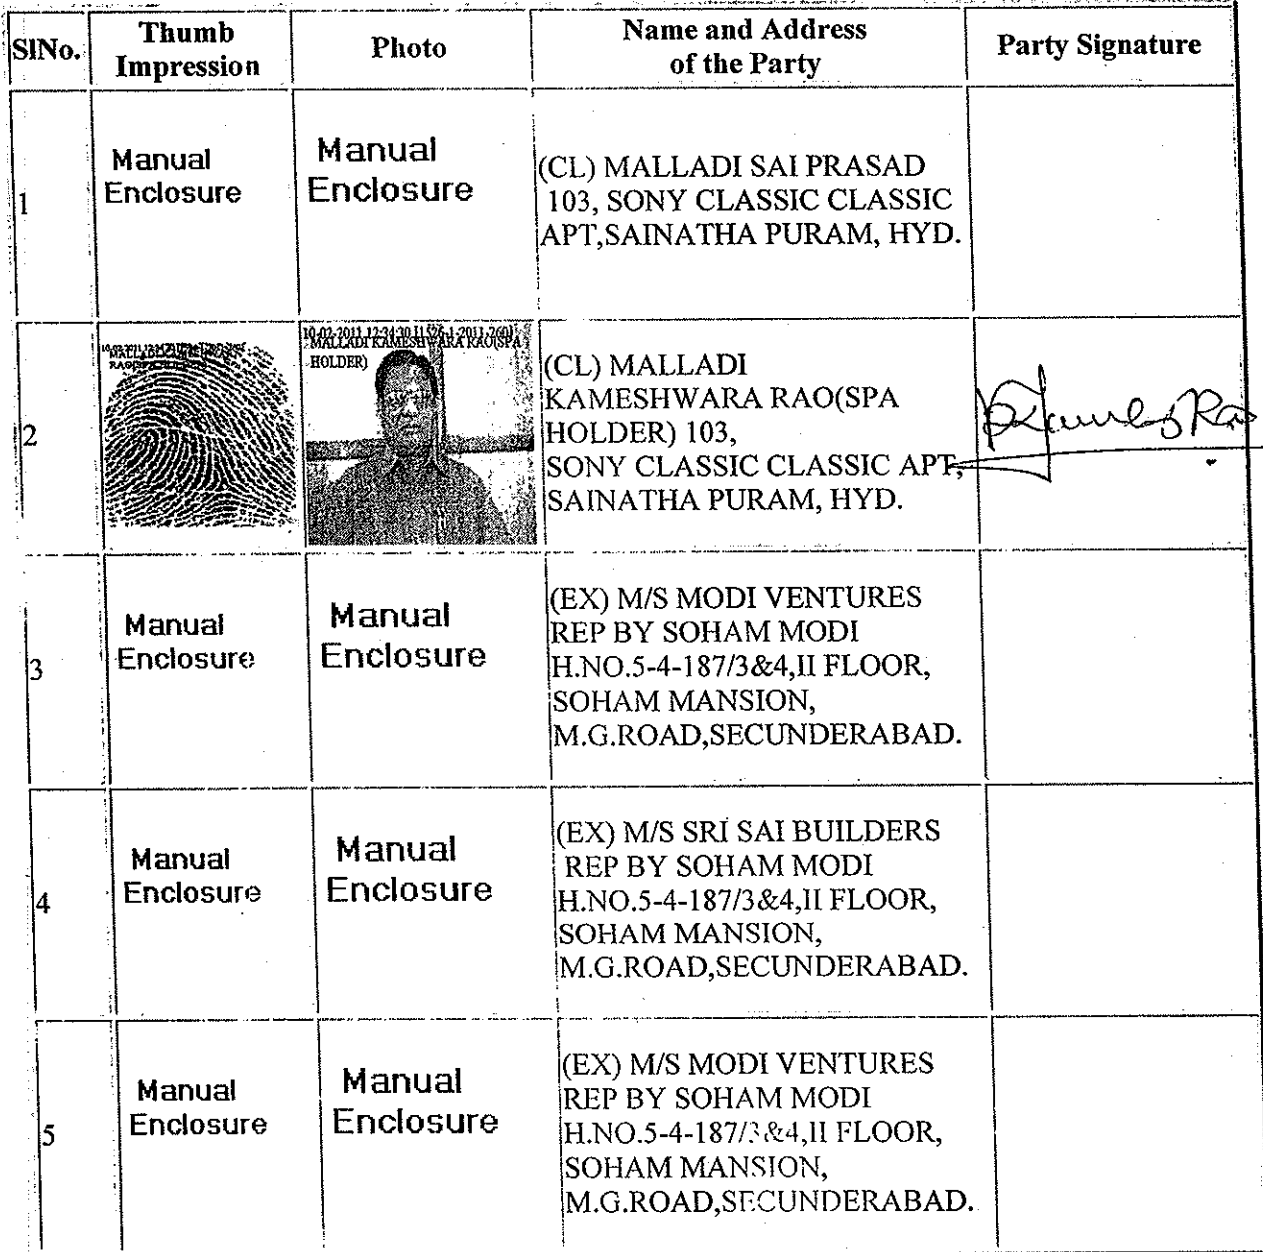 SlNo.
Thumb
Impression
Photo
Name and Address
of the Party
Party Signature
1
Manual
Enclosure
Manual
Enclosure
(CL) MALLADI SAI PRASAD
103, SONY CLASSIC CLASSIC
APT,SAINATHA PURAM, HYD.
2
MALLADI KAMESHWARA RAO(SPA
HOLDER)
(CL) MALLADI
KAMESHWARA RAO(SPA
HOLDER) 103,
SONY CLASSIC CLASSIC APT,
SAINATHA PURAM, HYD.
3
Manual
Enclosure
Manual
Enclosure
(EX) M/S MODI VENTURES
REP BY SOHAM MODI
H.NO.5-4-187/3&4,II FLOOR,
SOHAM MANSION,
M.G.ROAD,SECUNDERABAD.
4
Manual
Enclosure
Manual
Enclosure
(EX) M/S SRI SAI BUILDERS
REP BY SOHAM MODI
H.NO.5-4-187/3&4,II FLOOR,
SOHAM MANSION,
M.G.ROAD,SECUNDERABAD.
5
Manual
Enclosure
Manual
Enclosure
(EX) M/S MODI VENTURES
REP BY SOHAM MODI
H.NO.5-4-187/3&4,II FLOOR,
SOHAM MANSION,
M.G.ROAD,SECUNDERABAD.